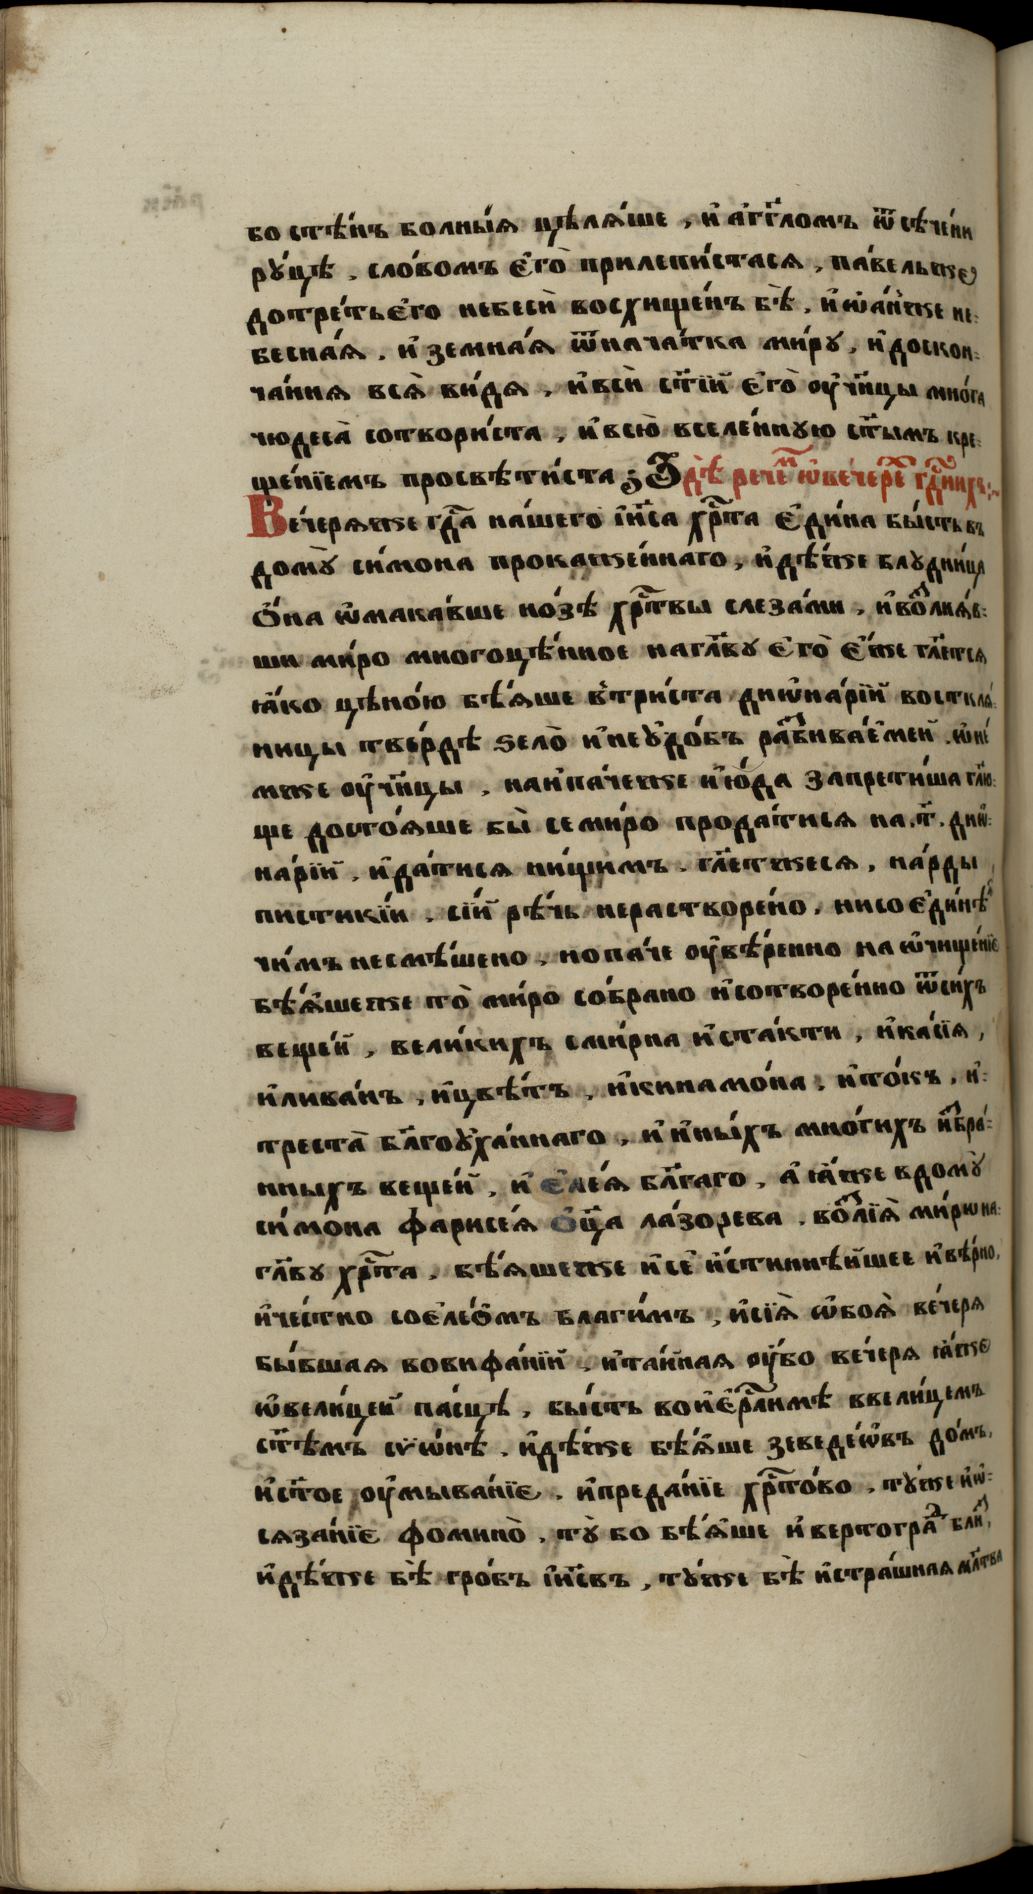 бо стѣ́нь болны́ѧ цѣлѧ́ше , и҆ а҆гг҃ломъ ѿсѣче́нн
рꙋ́цѣ , сло́вомъ є҆го̀ прилепи́стасѧ , па́вельже
дотре́тьєго небесѝ восхище́нъ бѣ̀ , и҆ѡ҆а́нъже не:
бесна́ѧ . и҆ земна́ѧ ѿнача́тка ми́рꙋ , и҆доскон:
ча́ниѧ всѧ̀ ви́дѧ , и҆всѝ ст҃і́й є҆го̀ ᲂу҆чн҃цы мно́га
чюдеса̀ сотвори́ста , и҆всю̀ вселе́ннꙋю ст҃ымъ кре:
ще́нїемъ просвѣти́ста ; Здѣ̀ рече́м ѡ҆вече́рех гдⷭ҇ннхъ:~
Ве́черѧже гдⷭ҇а на́шего і҆и҃са хрⷭ҇та є҆ди́на бы́сть въ
домꙋ̀ си́мона прокаже́ннаго , и҆дѣ́же блꙋдни́ца
ѻ҆́на ѡ҆мака́вше но́зѣ хрⷭ҇твы слеза́ми , и҆во́злиѧ́в:
ши ми́ро многоцѣ́нное наглⷡ҇ꙋ є҆го̀ є҆́же гл҃етсѧ
ꙗ҆́ко цѣно́ю бѣ́ѧше в҆три́ста дино҆на́рїй восткла:
ницы̀ тве́рдѣ ѕело̀ и҆неꙋдо́бь разбива́емей . ѡ҆не́
мже ᲂу҆чн҃цы , наи҆па́чеже и҆ю҆́да запрети́ша гл҃ю:
ще досто́ѧше бы̀ семи́ро прода́тисѧ на .т҃. динѡ:
на́рїй , и҆да́тисѧ ни́щимъ . гл҃етжесѧ , на́рды
писти́кїи , сі́й рѣ́чь нерастворе́но , нисоє҆ди́нѣм
чи́мъ несмѣ́шено , нопа́че ᲂу҆вѣ́ренно на ѡ҆чище́нїє
бѣ́ѧшеже то̀ ми́ро со́брано и҆сотворе́нно ѿси́хъ
веще́й , вели́кихъ сми́рна и҆ста́кти , и҆ка́сїѧ ,
и҆лива́нъ , и҆цвѣ́тъ , и҆кинамо́на , и҆то́къ , и҆:
треста̀ бл҃гоꙋха́ннаго , и҆ и҆ны́хъ мно́гихъ и҆збра́:
нныхъ веще́й , и҆ є҆ле́ѧ бл҃гаго , а҆ ꙗ҆́же вдомꙋ̀
си́мона фарисе́ѧ ѻ҆ц҃а ла́зорева . во́злїѧ̀ ми́рѡ на:
глⷡ҇ꙋ хрⷭ҇та , бѣ́ѧшеже и҆се҆ и҆́стиннѣ́йшее и҆вѣ́рно,
и҆че́стно соєле́ѻмъ благи́мъ , и҆сїѧ̀ ѡ҆боѧ̀ ве́черѧ
бы́вшаѧ вовифа́нїй , и҆та́йнаѧ ᲂу҆́бо ве́черѧ ꙗ҆́же
ѡ҆вели́цей па́сцѣ , бы́сть вои҆є҆рⷭ҇лимѣ ввели́цемъ
ст҃ѣмъ сїѡ́нѣ . и҆дѣ́же бѣ́ѧше зеведе́ѡвъ до́мъ,
и҆ст҃ое ᲂу҆мыва́нїе . и҆преда́нїе хрⷭ҇то́во , тꙋ́же и҆ѡ:
сѧза́нїе фомино̀ , тꙋ̀ бо бѣ́ѧше и҆ вертогра́д бли́з,
и҆дѣ́же бѣ̀ гро́бъ і҆и҃свъ , тꙋ́же бѣ̀ и҆стра́шнаѧ мл҃тва